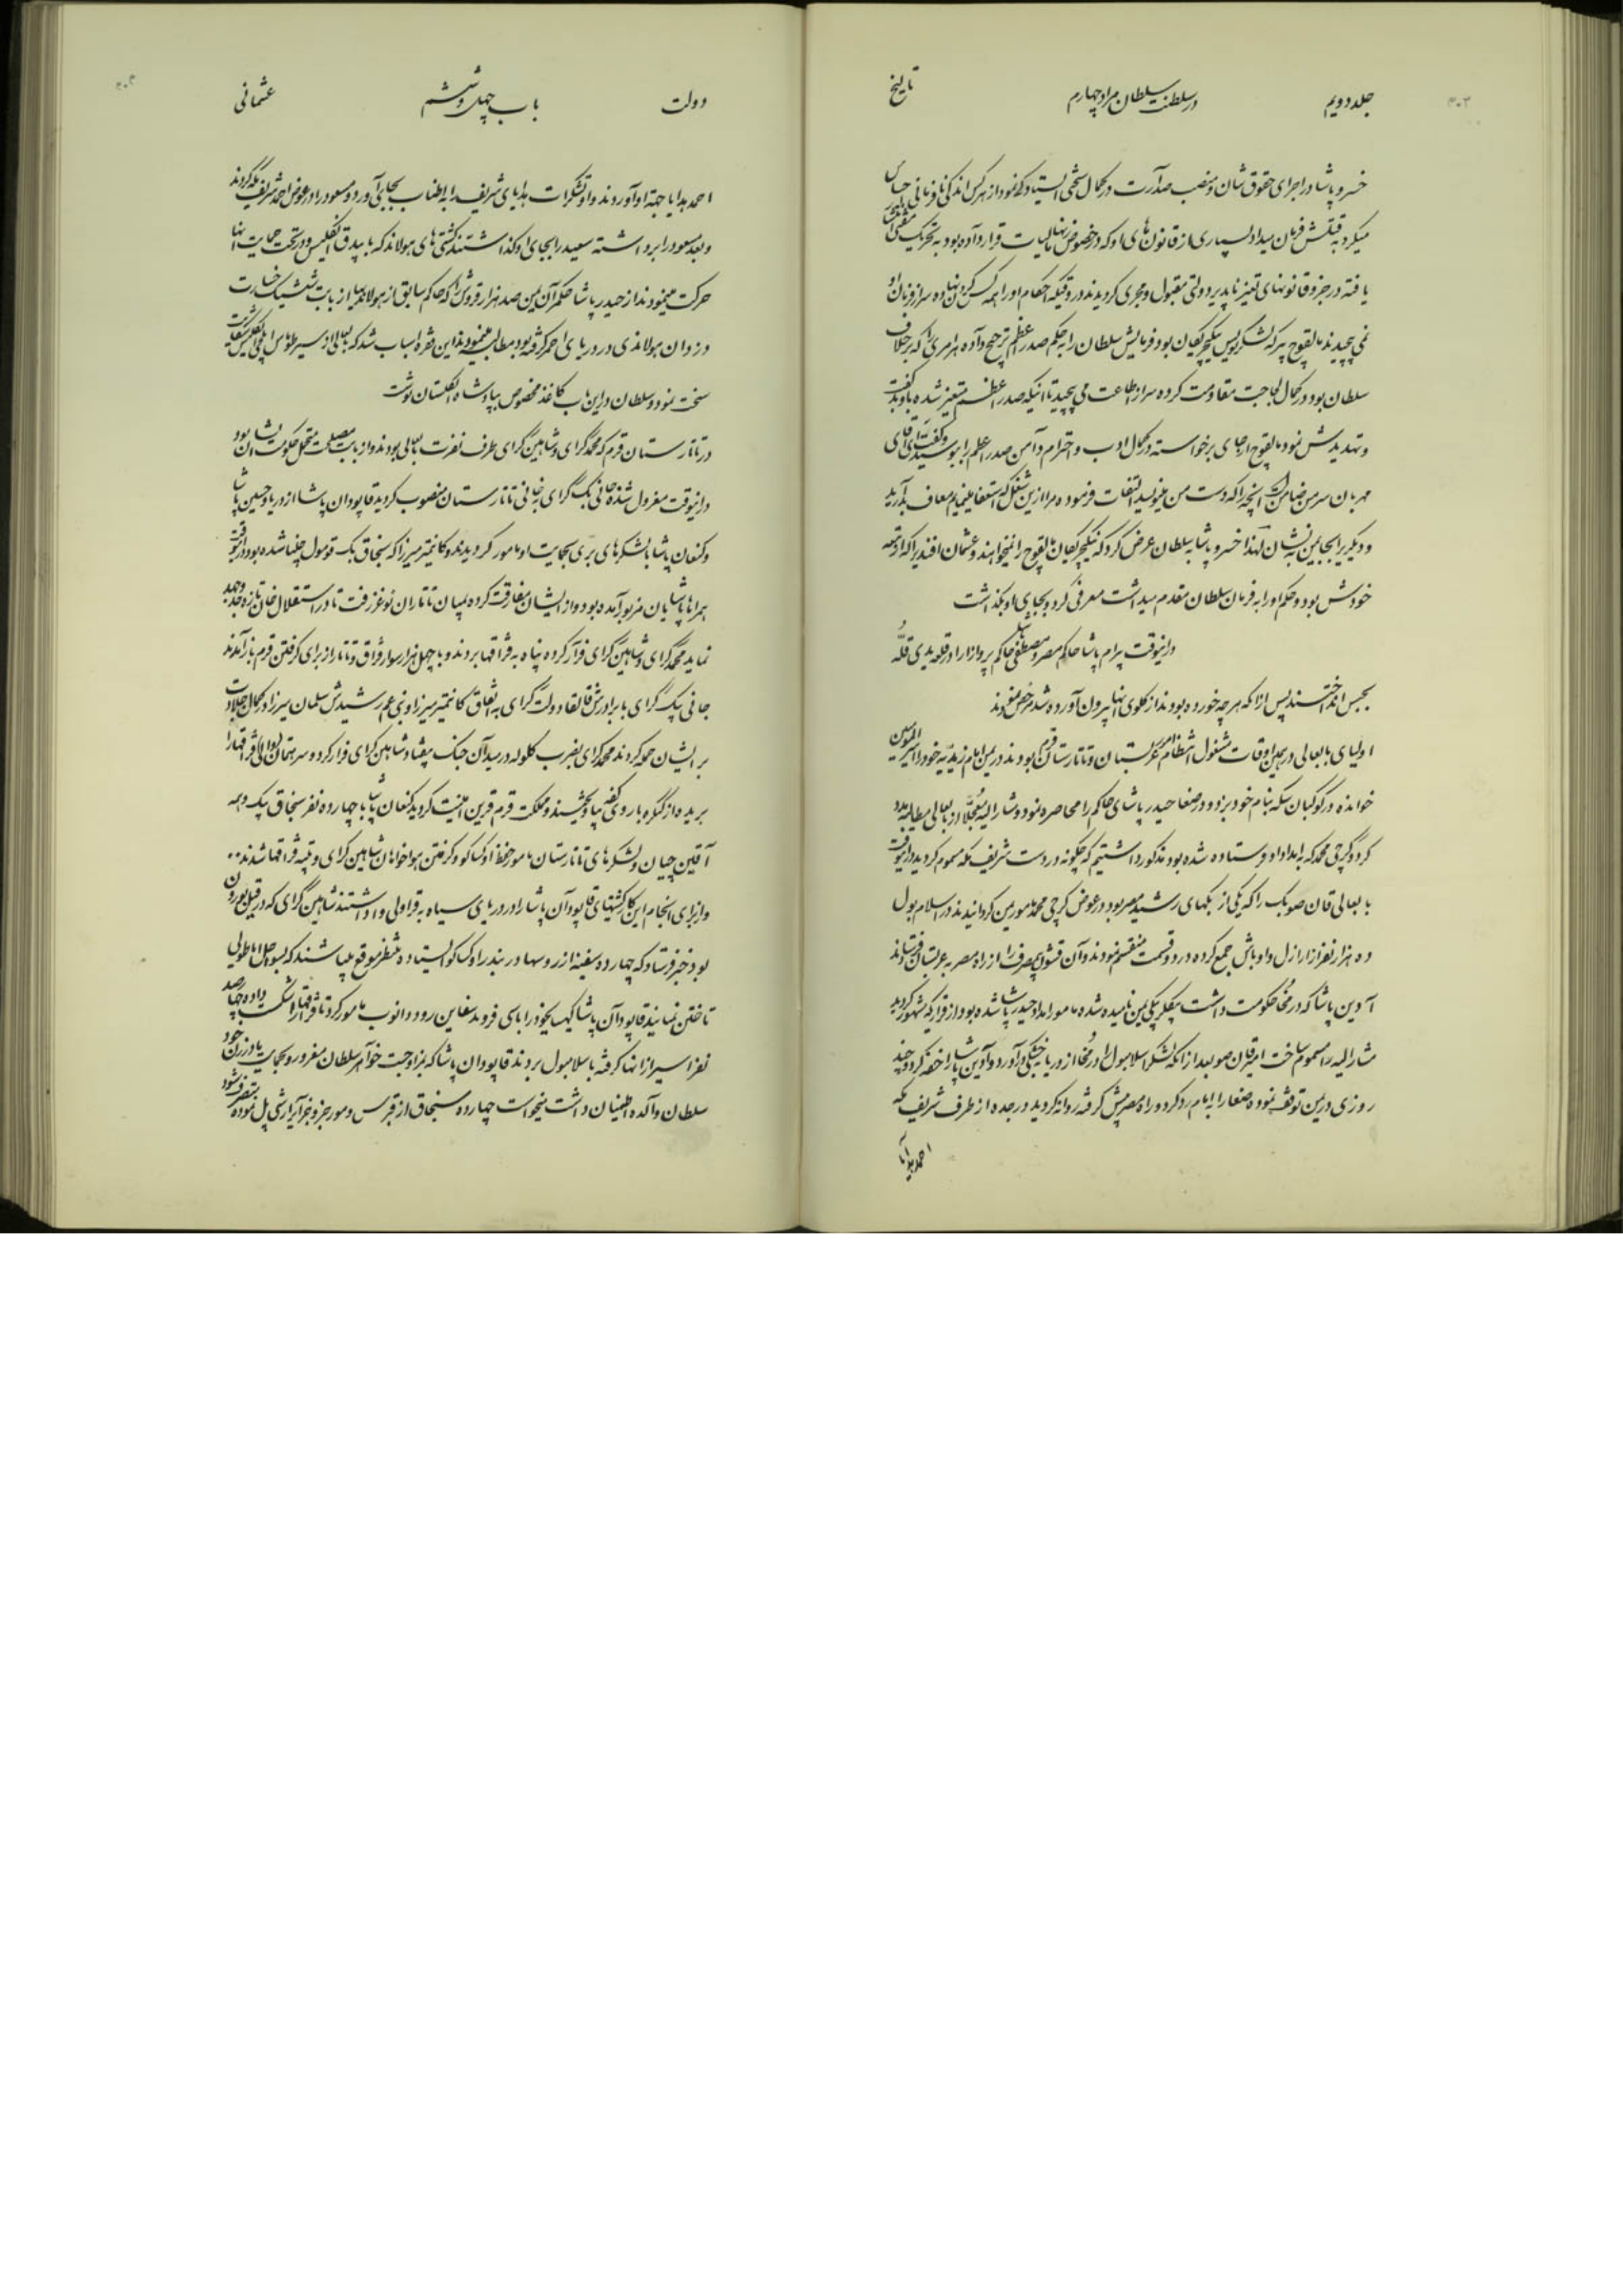 جلد دویم
در سلطنت سلطان مراد چهارم
تاریخ
خسرو پاشا در اجرای حقوق شان و منصب صدارت در کمال سختی ایستادگی نمود از هر کس اندک نافرمانی
میکرد به قتلش فرمان میداد بسیاری از قانون های او که در خصوص مالیات قرار داده بود به تحریک مفتی
یافته در جزو قانونهای تغییر ناپذیر دولتی مقبول و مجری کردیدند در وقتیکه احکام او را همه کس گردن نهاده سر از فرمان او
نمی پیچیدند مالقوج پیر که لشکر نویس ینگچریکان بود فرمایش سلطان را به حکم صدر اعظم ترجیح داده هر امری را که برخلاف
سلطان بود در کمال لجاجت مقاومت کرده سر از اطاعت می پیچید تا اینکه صدر اعظم متغیر شده باو بد گفت
و تهدیدش نمود مالقوج از جای برخواسته در کمال ادب و احترام دامن صدر اعظم را بوسید و گفت ای آقای
مهربان سر من ضامن است آنچه را که دست من مینویسد التفات فرموده مرا ازین شغل که استعفا مینمایم معاف بدارید
و دیگریرا بجایمن بنشان لهذا خسرو پاشا به سلطان عرض کرد که ینگچریکان مالقوج را نمیخواهند و عثمان افندیرا که از تبعه
خودش بود و حکم او را به فرمان سلطان مقدم میداشت معرفی کرد و بجای او بگذاشت
در اینوقت بیرام پاشا حاکم مصر و مصطفی حاکم پروازار را در قلعه یدی قله
بحبس انداختند پس از آنکه هر چه خورده بودند از گلوی آنها بیرون آورده شد مرخص نمودند
اولیای بابعالی در همین اوقات مشغول انتظام امر عربستان و تاتارستان قرم بودند در یمن امام زیدیه خود را امیر المومنین
خوانده در کوکبان سکه بنام خود بزد و در صنعا حیدر پاشای حاکم را محاصره نمود و مشار الیه معجلاً از بابعالی مطالبه مدد
کرد و کرجی محمد که به امداد او فرستاده شده بود مذکور داشتیم که چگونه در دست شریف مکه مسموم کردید در اینوقت
بابعالی قانصو بک را که یکی از بکهای رشید مصر بود در عوض کرجی محمد مامور یمن کردانیدند در اسلامبول
ده هزار نفر از اراذل و اوباش جمع کرده در دو قسمت منقسم نمودند و آن قشون بیمصرف را از راه مصر به عربستان فرستادند
آدین پاشا که در مخا حکومت داشت بیکلربیکی یمن نامیده شده مامور امداد حیدر پاشا شده بود از قراریکه مشهور کردید
مشار الیه را مسموم ساخت امیر قانصو بعد از آنکه لشکر اسلامبول را در مخا از دریا بخشکی در آورد و آدین پاشا را خفه کرد و چند
روزی در یمن توقف نموده صنعا را به امام رد کرد و راه مصر پیش گرفته روانه کردید در جده از طرف شریف مکه
احمد هدایا
دولت
باب چهل و ششم
عثمانی
احمد هدایا جهة او آوردند و او تشکرات هدایای شریف را به اطناب بجای آورد و مسعود را در عوض احمد شریف مکه کردند
و بعد مسعود را برداشته سعید را بجای او گذاشتند کشتی های هولاند که با بیدق انگلیس و در تحت حمایت آنها
حرکت مینمودند از حیدر پاشا حکمران یمن صد هزار قروش را که حاکم سابق از هولاندیها از بابت خسارت
دزدان هولاندی در دریای احمر گرفته بود مطالبه مینمودند این فقره اسباب شد که بابعالی از سیر طوماس ایلچی انگلیس شکایت
سخت نمود و سلطان در این باب کاغذ مخصوص بپادشاه انگلستان نوشت
در تاتارستان قرم که محمد گرای و شاهین گرای طرف نفرت بابعالی بودند و از بابت مصلحت متحمل حکومت ایشان بود
در اینوقت معزول شده جانی بک گرای بخانی تاتارستان منصوب کردید قاپودان پاشا از دریا و حسین پاشا
و کنعان پاشا با لشکرهای بری بحمایت او مامور کردیدند و کانتیمر میرزا که سنجاق بک
همراه پاشایان مزبور آمده بود و از ایشان مفارقت کرده بمیان تاتاران نوغز رفت تا در استقلال خان تازه جد و جهد
نماید محمد گرای و شاهین گرای فرار کرده پناه به قزاقها بردند و با چهل هزار سوار قزاق و تاتار از برای گرفتن قرم باز آمدند
جانی بیک گرای با برادرش قالقا دولت گرای به اتفاق کانتیمر میرزا و بنی عم رشیدش سلمان میرزا در کمال جلادت
بر ایشان حمله کردند محمد گرای بضرب گلوله در میدان جنگ بیفتاد و شاهین گرای فرار کرد و سر همتمان
بریده از کنگره باروی کفه بیاویختند و مملکت قرم قرین امنیت کردید کنعان پاشا با چهارده نفر سنجاق بیک و همه
آقینچیان و لشکرهای تاتارستان مامور حفظ اوکساکو و گرفتن هواخواهان شاهین گرای و تنبیه قزاقها شدند
و از برای انجام این کار کشتیهای قاپودان پاشا را در دریای سیاه به قراولی واداشتند شاهین گرای که در قیلبورون
بود خبر فرستاد که چهارده سفینه از روسها در بندر اوکساکو ایستاده منتظر موقع میباشند که بسواحل اناطولی
تاختن نمایند قاپودان پاشا کیهه بیخود را با سی فروند سفاین رود دانوب مامور کرد تا قزاقها را شکست داده چهار صد
نفر اسیر از آنها گرفته باسلامبول بردند قاپودان پاشا که بمزاوجت خواهر سلطان مغرور و بحمایت مادر زن خود
سلطان والده اطمینان داشت میخواست چهارده سنجاق از قبرس و موره و جزو جزایر ارشی پل نموده متصرف شود